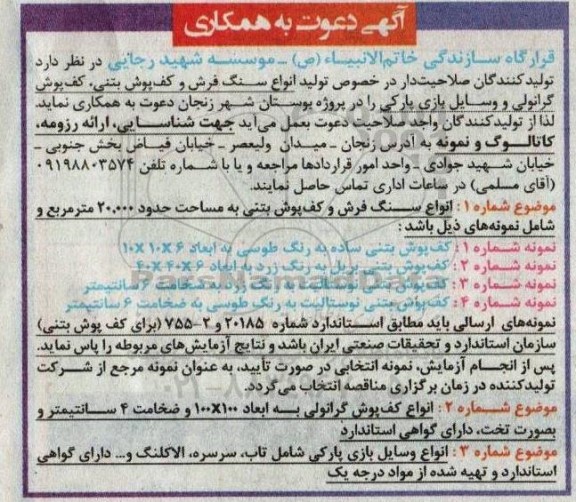 آگهی دعوت به همکاری
قرارگاه سازندگی خاتم‌الانبیاء (ص) - موسسه شهید رجایی در نظر دارد
تولیدکنندگان صلاحیت‌دار در خصوص تولید انواع سنگ فرش و کف‌پوش بتنی، کف‌پوش
گرانولی و وسایل بازی پارکی را در پروژه بوستان شهر زنجان دعوت به همکاری نماید.
لذا از تولیدکنندگان واجد صلاحیت دعوت بعمل می‌آید جهت شناسایی، ارائه رزومه،
کاتالوگ و نمونه به آدرس زنجان - میدان ولیعصر - خیابان فیاض بخش جنوبی -
خیابان شهید جوادی - واحد امور قراردادها مراجعه و یا با شماره تلفن ۰۹۱۹۸۸۰۳۵۷۴
(آقای مسلمی) در ساعات اداری تماس حاصل نمایند.
موضوع شماره ۱: انواع سنگ فرش و کف‌پوش بتنی به مساحت حدود ۲۰,۰۰۰ مترمربع و
شامل نمونه‌های ذیل باشد:
نمونه شماره ۱: کف‌پوش بتنی ساده به رنگ طوسی به ابعاد ۶ X ۱۰ X ۱۰
نمونه شماره ۲: کف‌پوش بتنی بریل به رنگ زرد به ابعاد ۶ X ۴۰ X ۴۰
نمونه شماره ۳: کف‌پوش بتنی نوستالیت به رنگ زرد به ضخامت ۶ سانتیمتر
نمونه شماره ۴: کف‌پوش بتنی نوستالیت به رنگ طوسی به ضخامت ۶ سانتیمتر
نمونه‌های ارسالی باید مطابق استاندارد شماره ۲۰۱۸۵ و ۲-۷۵۵ (برای کف پوش بتنی)
سازمان استاندارد و تحقیقات صنعتی ایران باشد و نتایج آزمایش‌های مربوطه را پاس نماید.
پس از انجام آزمایش، نمونه انتخابی در صورت تأیید، به عنوان نمونه مرجع از شرکت
تولیدکننده در زمان برگزاری مناقصه انتخاب می‌گردد.
موضوع شماره ۲: انواع کف‌پوش گرانولی به ابعاد ۱۰۰X۱۰۰ و ضخامت ۴ سانتیمتر و
بصورت تخت، دارای گواهی استاندارد
موضوع شماره ۳: انواع وسایل بازی پارکی شامل تاب، سرسره، الاکلنگ و... دارای گواهی
استاندارد و تهیه شده از مواد درجه یک